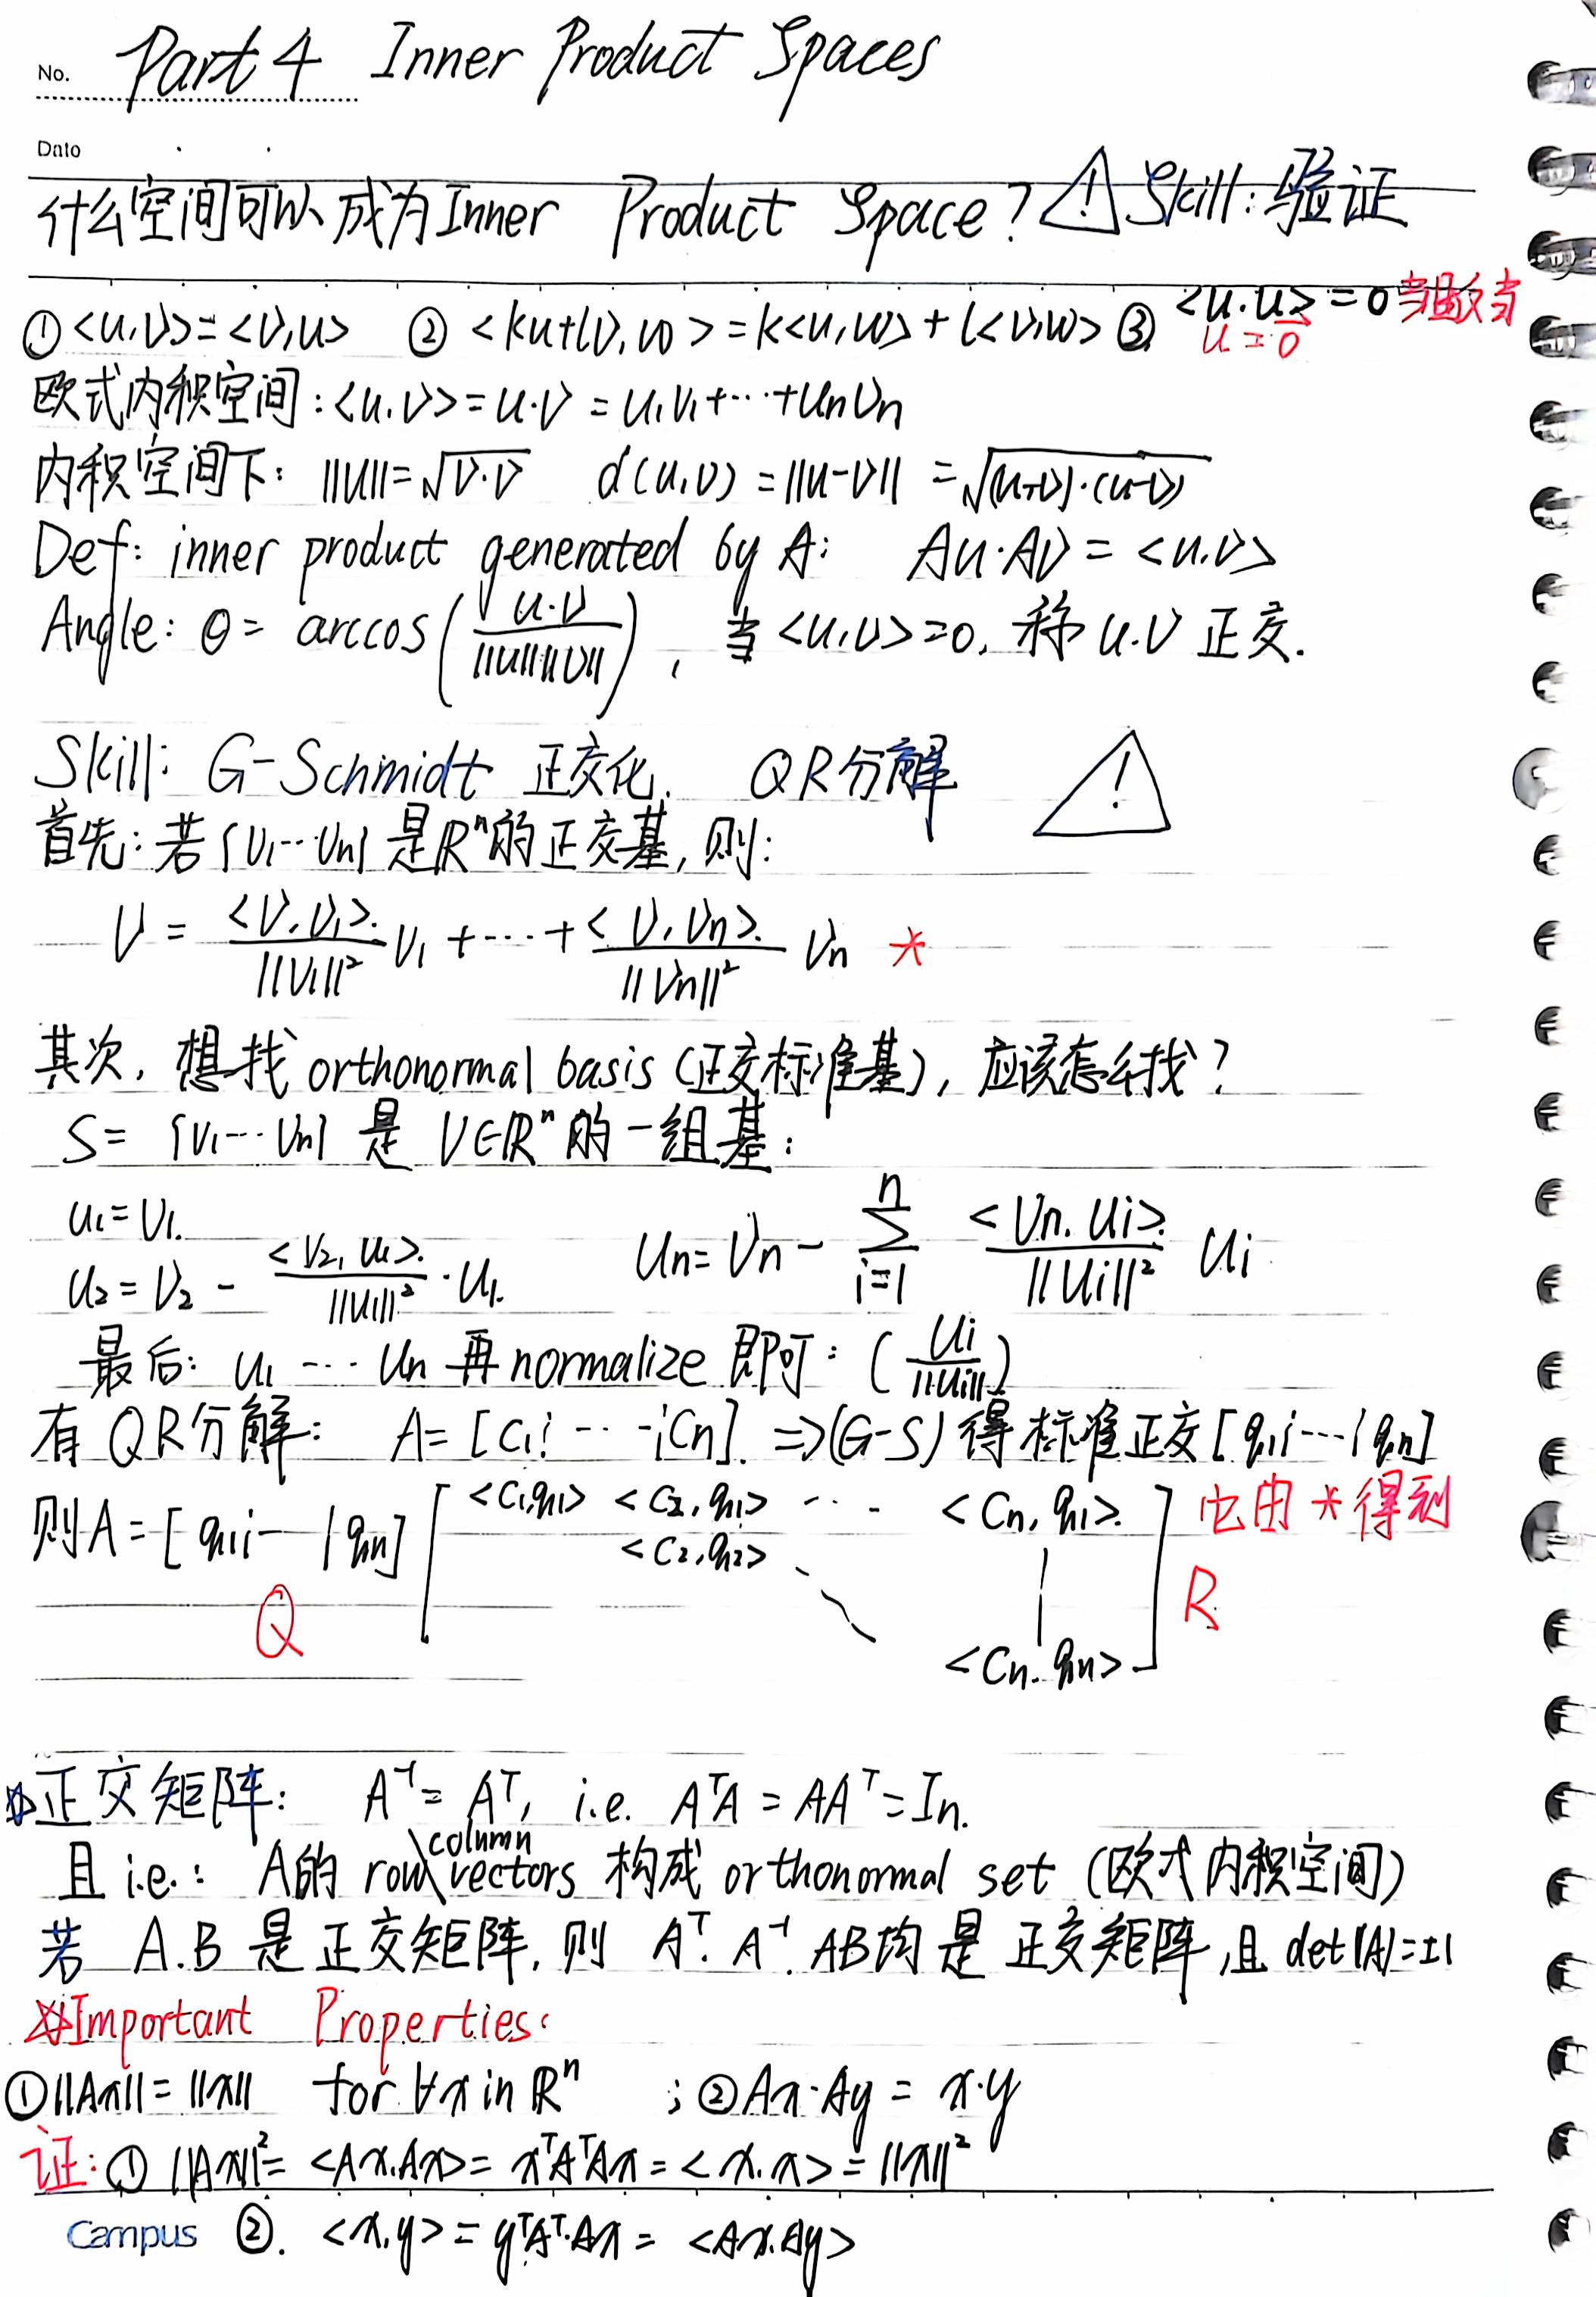 No. Part 4 Inner Product Spaces
Date
什么空间可以成为Inner Product Space? ⚠ Skill: 验证
① <u,v> = <v,u> ② <ku+lv, w> = k<u,w> + l<v,w> ③ <u,u> = 0 当且仅当 u = 0⃗
欧式内积空间: <u,v> = u·v = u₁v₁+···+unvn
内积空间下: ||u|| = √(v·v) d(u,v) = ||u-v|| = √((u-v)·(u-v))
Def: inner product generated by A: Au·Av = <u,v>
Angle: θ = arccos(u·v / ||u||||v||), 当<u,v>=0, 称 u.v 正交.
Skill: G-Schmidt 正交化. QR分解 ⚠
首先: 若{v₁···vn}是ℝⁿ的正交基, 则:
v = <v,v₁>/||v₁||² v₁ +···+ <v,vn>/||vn||² vn *
其次, 想找 orthonormal basis (正交标准基), 应该怎么找?
S = {v₁···vn} 是 V∈ℝⁿ的一组基:
u₁=v₁.
u₂ = v₂ - <v₂,u₁>/||u₁||² · u₁. un = vn - Σ(i=1→n) <vn,ui>/||ui||² ui
最后: u₁ ··· un 再 normalize 即可: (ui/||ui||)
有 QR分解: A = [c₁¦ ··· ¦cn]. ⇒(G-S) 得标准正交[q₁¦···¦qn]
则A = [q₁¦─ ¦qn] [<c₁,q₁> <c₂,q₁> ··· <cn,q₁> 它由 * 得到
<c₂,q₂>
Q R
<cn,qn>]
正交矩阵: A⁻¹ = Aᵀ, i.e. AᵀA = AAᵀ = In.
且 i.e.: A的 row\column vectors 构成 orthonormal set (欧式内积空间)
若 A.B 是正交矩阵, 则 Aᵀ. A⁻¹. AB均是正交矩阵, 且 det(A)=±1
Important Properties:
① ||Ax|| = ||x|| for ∀x in ℝⁿ ; ② Ax·Ay = x·y
证: ① ||Ax||² = <Ax.Ax> = xᵀAᵀAx = <x.x> = ||x||²
Campus ②. <x,y> = yᵀAᵀ·Ax = <Ax.Ay>